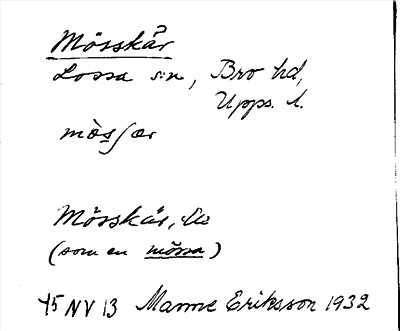 Mösskär
Lossa sn, Bro hd,
Upps. l.
mòs̲ʃær
Mösskär,
(som en mössa)
45 NV 13 Manne Eriksson 1932